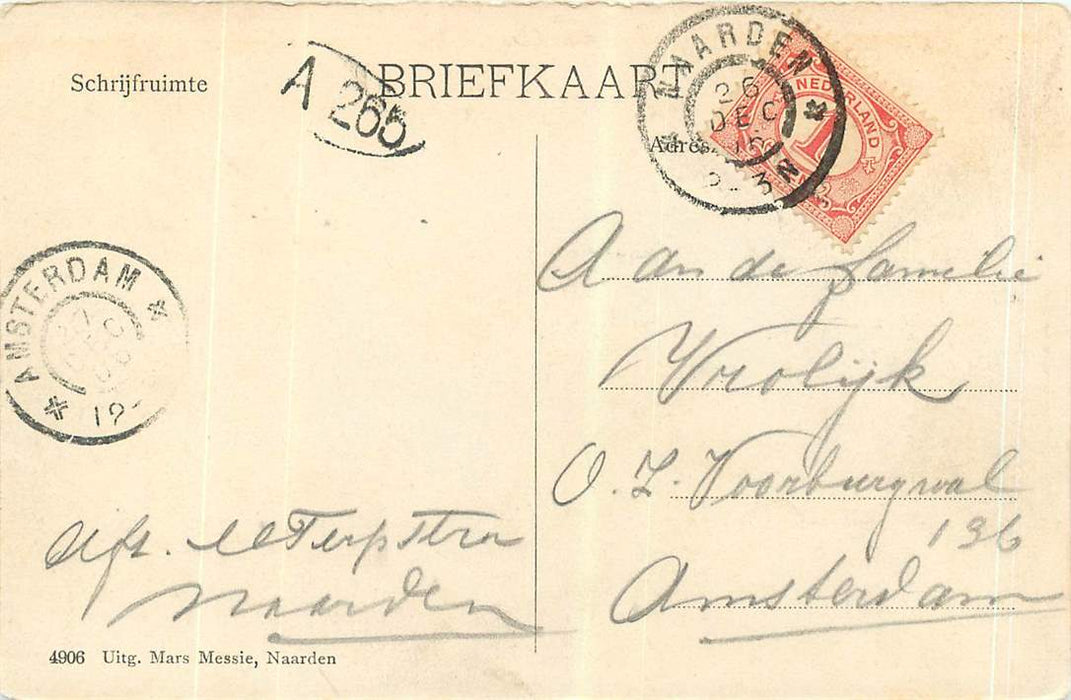 BRIEFKAART
Schrijfruimte
A 265
NAARDEN
26
DEC
2-3 N
NEDERLAND
1
Adres
AMSTERDAM
DEC
12-
Aan de familie
Vrolijk
O. Z. Voorburgwal
136
Amsterdam
Afz. Terpstra
Naarden
4906 Uitg. Mars Messie, Naarden